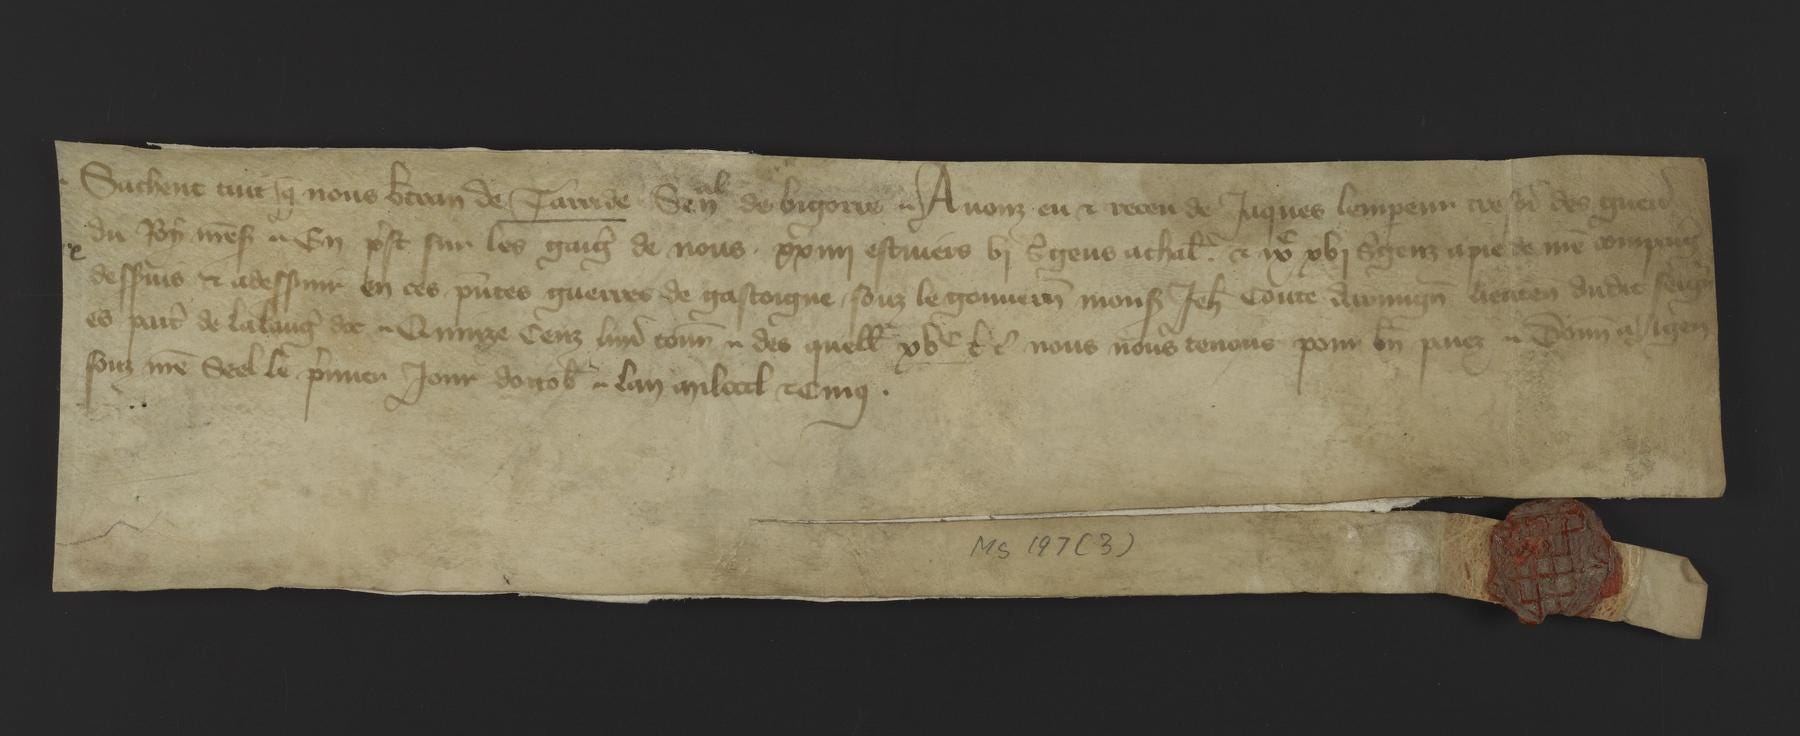 Sachent tuit q̄ nous Bertran de Tarride Senˡ de bigorre Avonz eu & receu de Jaques lempereur tresor̄ des guerr̄
du Roy nr̄e s̄ En p̄st sur les gaiḡ de nous xxiiij escuiers vj s̄gens acheval & ix xvj s̄genz a pie de nr̄e compaiḡ
desservis & a desservir en ces p̄ntes guerres de gascoigne souz le gouvern̄ mons̄ Jeh̄ Conte darmign̄ lieuten̄ dudit seign̄
es part̄ de la lanḡ doc Quinze Cenz livr̄ torn̄ des quell̄ xvᶜ l̄ t̄ nous nous tenons pour bn̄ paiez Donn̄ a agen
souz nr̄e Seel le p̄mier Jour doctob̄ lan mil ccc l & Cinq .
Ms 197 (3)